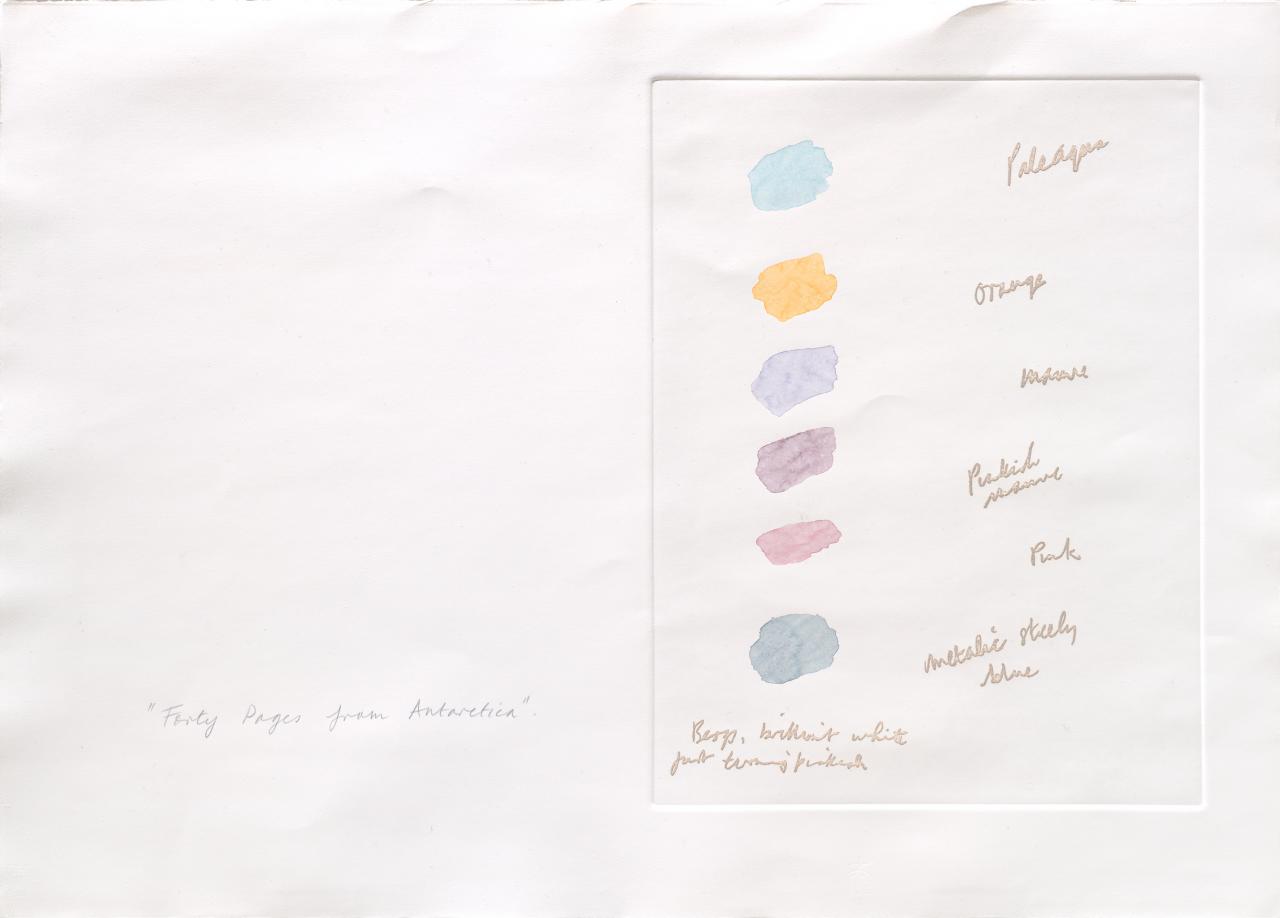 Pale aqua
Orange
mauve
Pinkish
mauve
Pink
metalic steely
blue
"Forty Pages from Antarctica".
Bergs, brilliant white
just turning pinkish